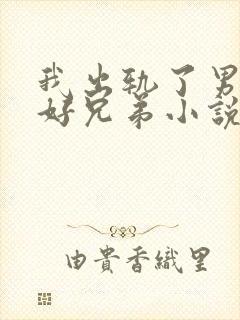 我出轨了男
好兄弟小說
由貴香織里